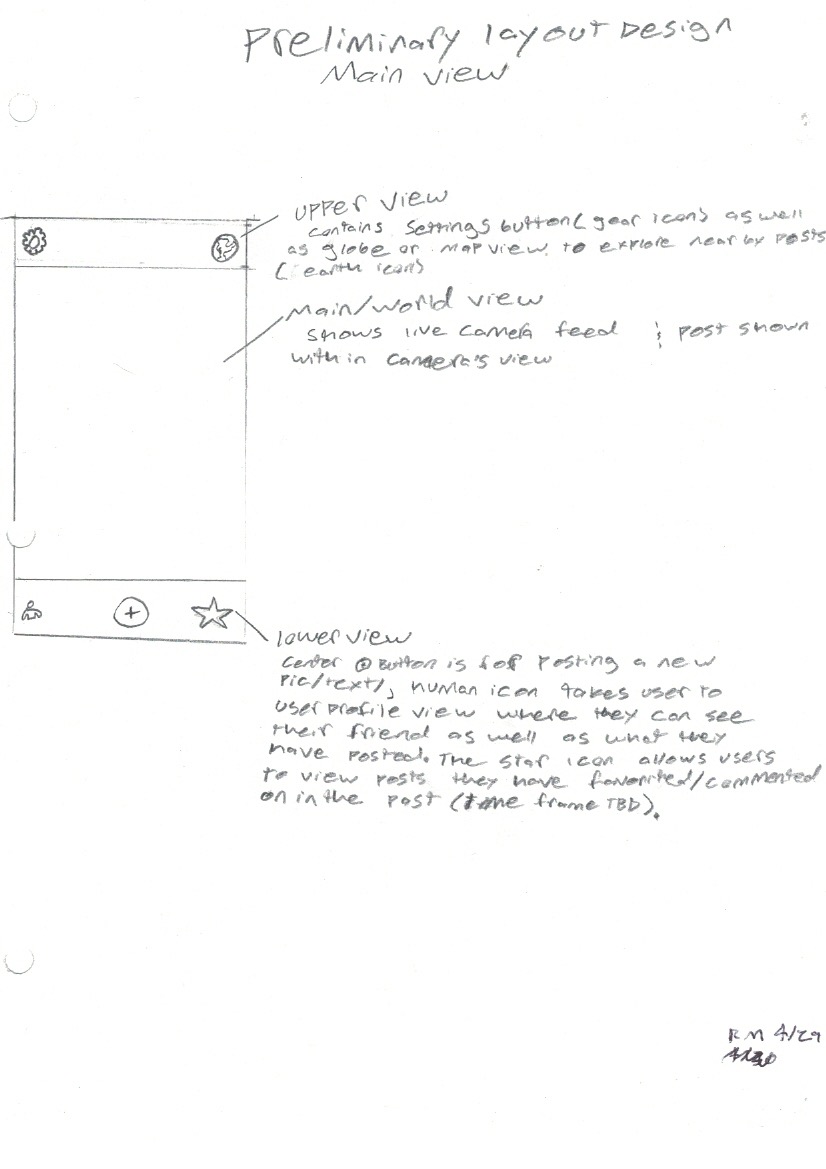 Preliminary layout Design
Main view
UPPER VIEW
contains settings button (gear icon) as well
as globe or map view to explore near by posts
(earth icon)
Main/World view
shows live camera feed & post shown
with in camera's view
+
lower view
center ⊕ Button is for posting a new
pic/text/, human icon takes user to
user profile view where they can see
their friend as well as what they
have posted. The star icon allows users
to view posts they have favorited/commented
on in the post (time frame TBD).
RM 4/29